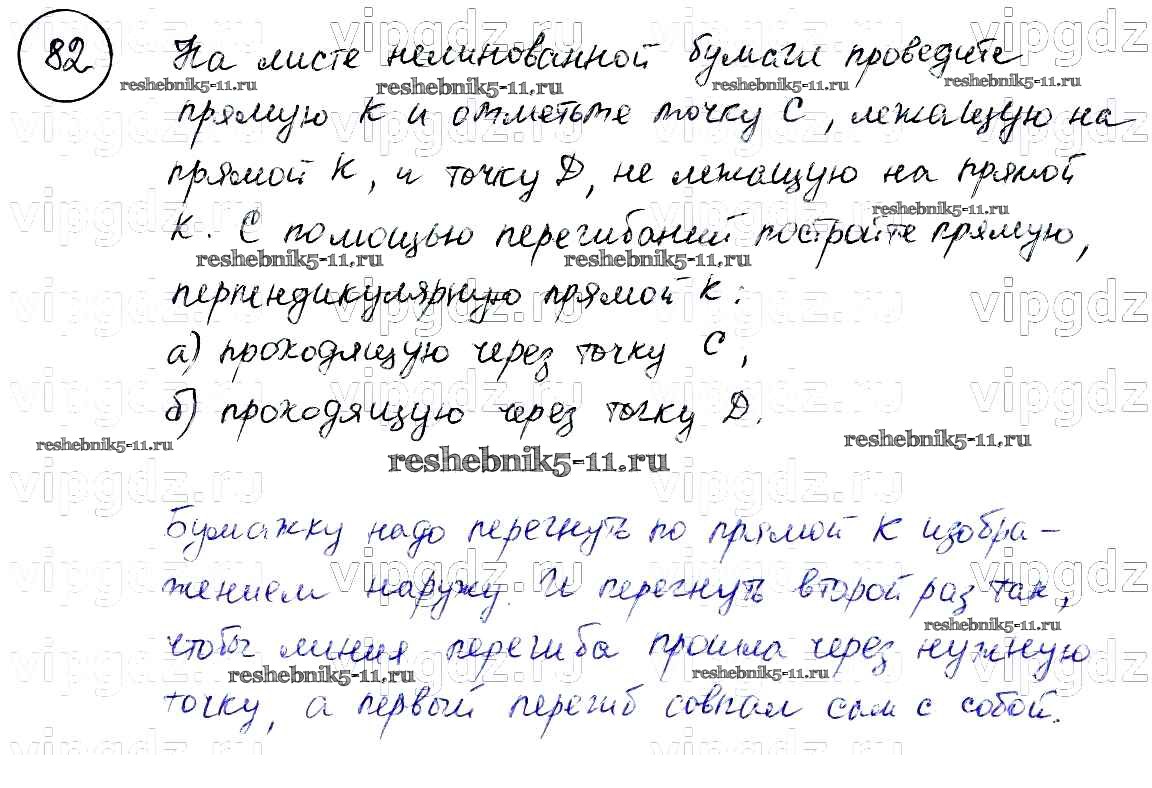 82 На листе нелинованной бумаги проведите
прямую К и отметьте точку С, лежащую на
прямой К, и точку Д, не лежащую на прямой
К. С помощью перегибаний постройте прямую,
перпендикулярную прямой К:
а) проходящую через точку С,
б) проходящую через точку Д.
reshebnik5-11.ru
Бумажку надо перегнуть по прямой К изобра-
жением наружу. И перегнуть второй раз так,
чтобы линия перегиба прошла через нужную
точку, а первый перегиб совпал сам с собой.
vipgdz.ru